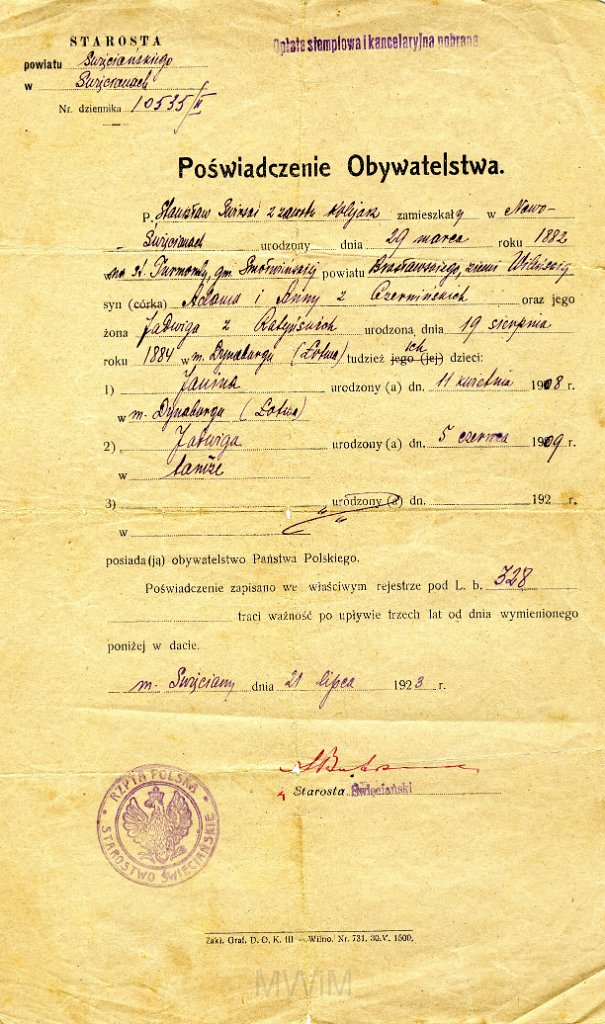 STAROSTA
Opłata stemplowa i kancelaryjna pobrana
powiatu Święciańskiego
w Święcianach
Nr. dziennika 10535/II
Poświadczenie Obywatelstwa.
P. Stanisław z zawodu kolejarz zamieszkały w Nowo-
Święcianach urodzony dnia 29 marca roku 1882
w st. Turmonty, gm. Smołwieńskiej powiatu Brasławskiego, ziemi Wileńskiej
syn (córka) Adama i Anny z Czernińskich oraz jego
żona Jadwiga z Ratyńskich urodzona dnia 19 sierpnia
roku 1884 w m. Dynaburgu (Łotwa) tudzież ich jego (jej) dzieci:
1) Janina urodzony (a) dn. 11 kwietnia 1908 r.
w m. Dynaburgu (Łotwa)
2) Jadwiga urodzony (a) dn. 5 czerwca 1909 r.
w tamże
3) urodzony (a) dn. 192 r.
w
posiada(ją) obywatelstwo Państwa Polskiego.
Poświadczenie zapisano we właściwym rejestrze pod L. b. 328
traci ważność po upływie trzech lat od dnia wymienionego
poniżej w dacie.
m. Święciany dnia 21 lipca 1923 r.
Starosta Święciański
RZPTA POLSKA
STAROSTWO ŚWIĘCIAŃSKIE
Zakł. Graf. D. O. K. III — Wilno. Nr. 731. 30.V. 1500.
MWIM